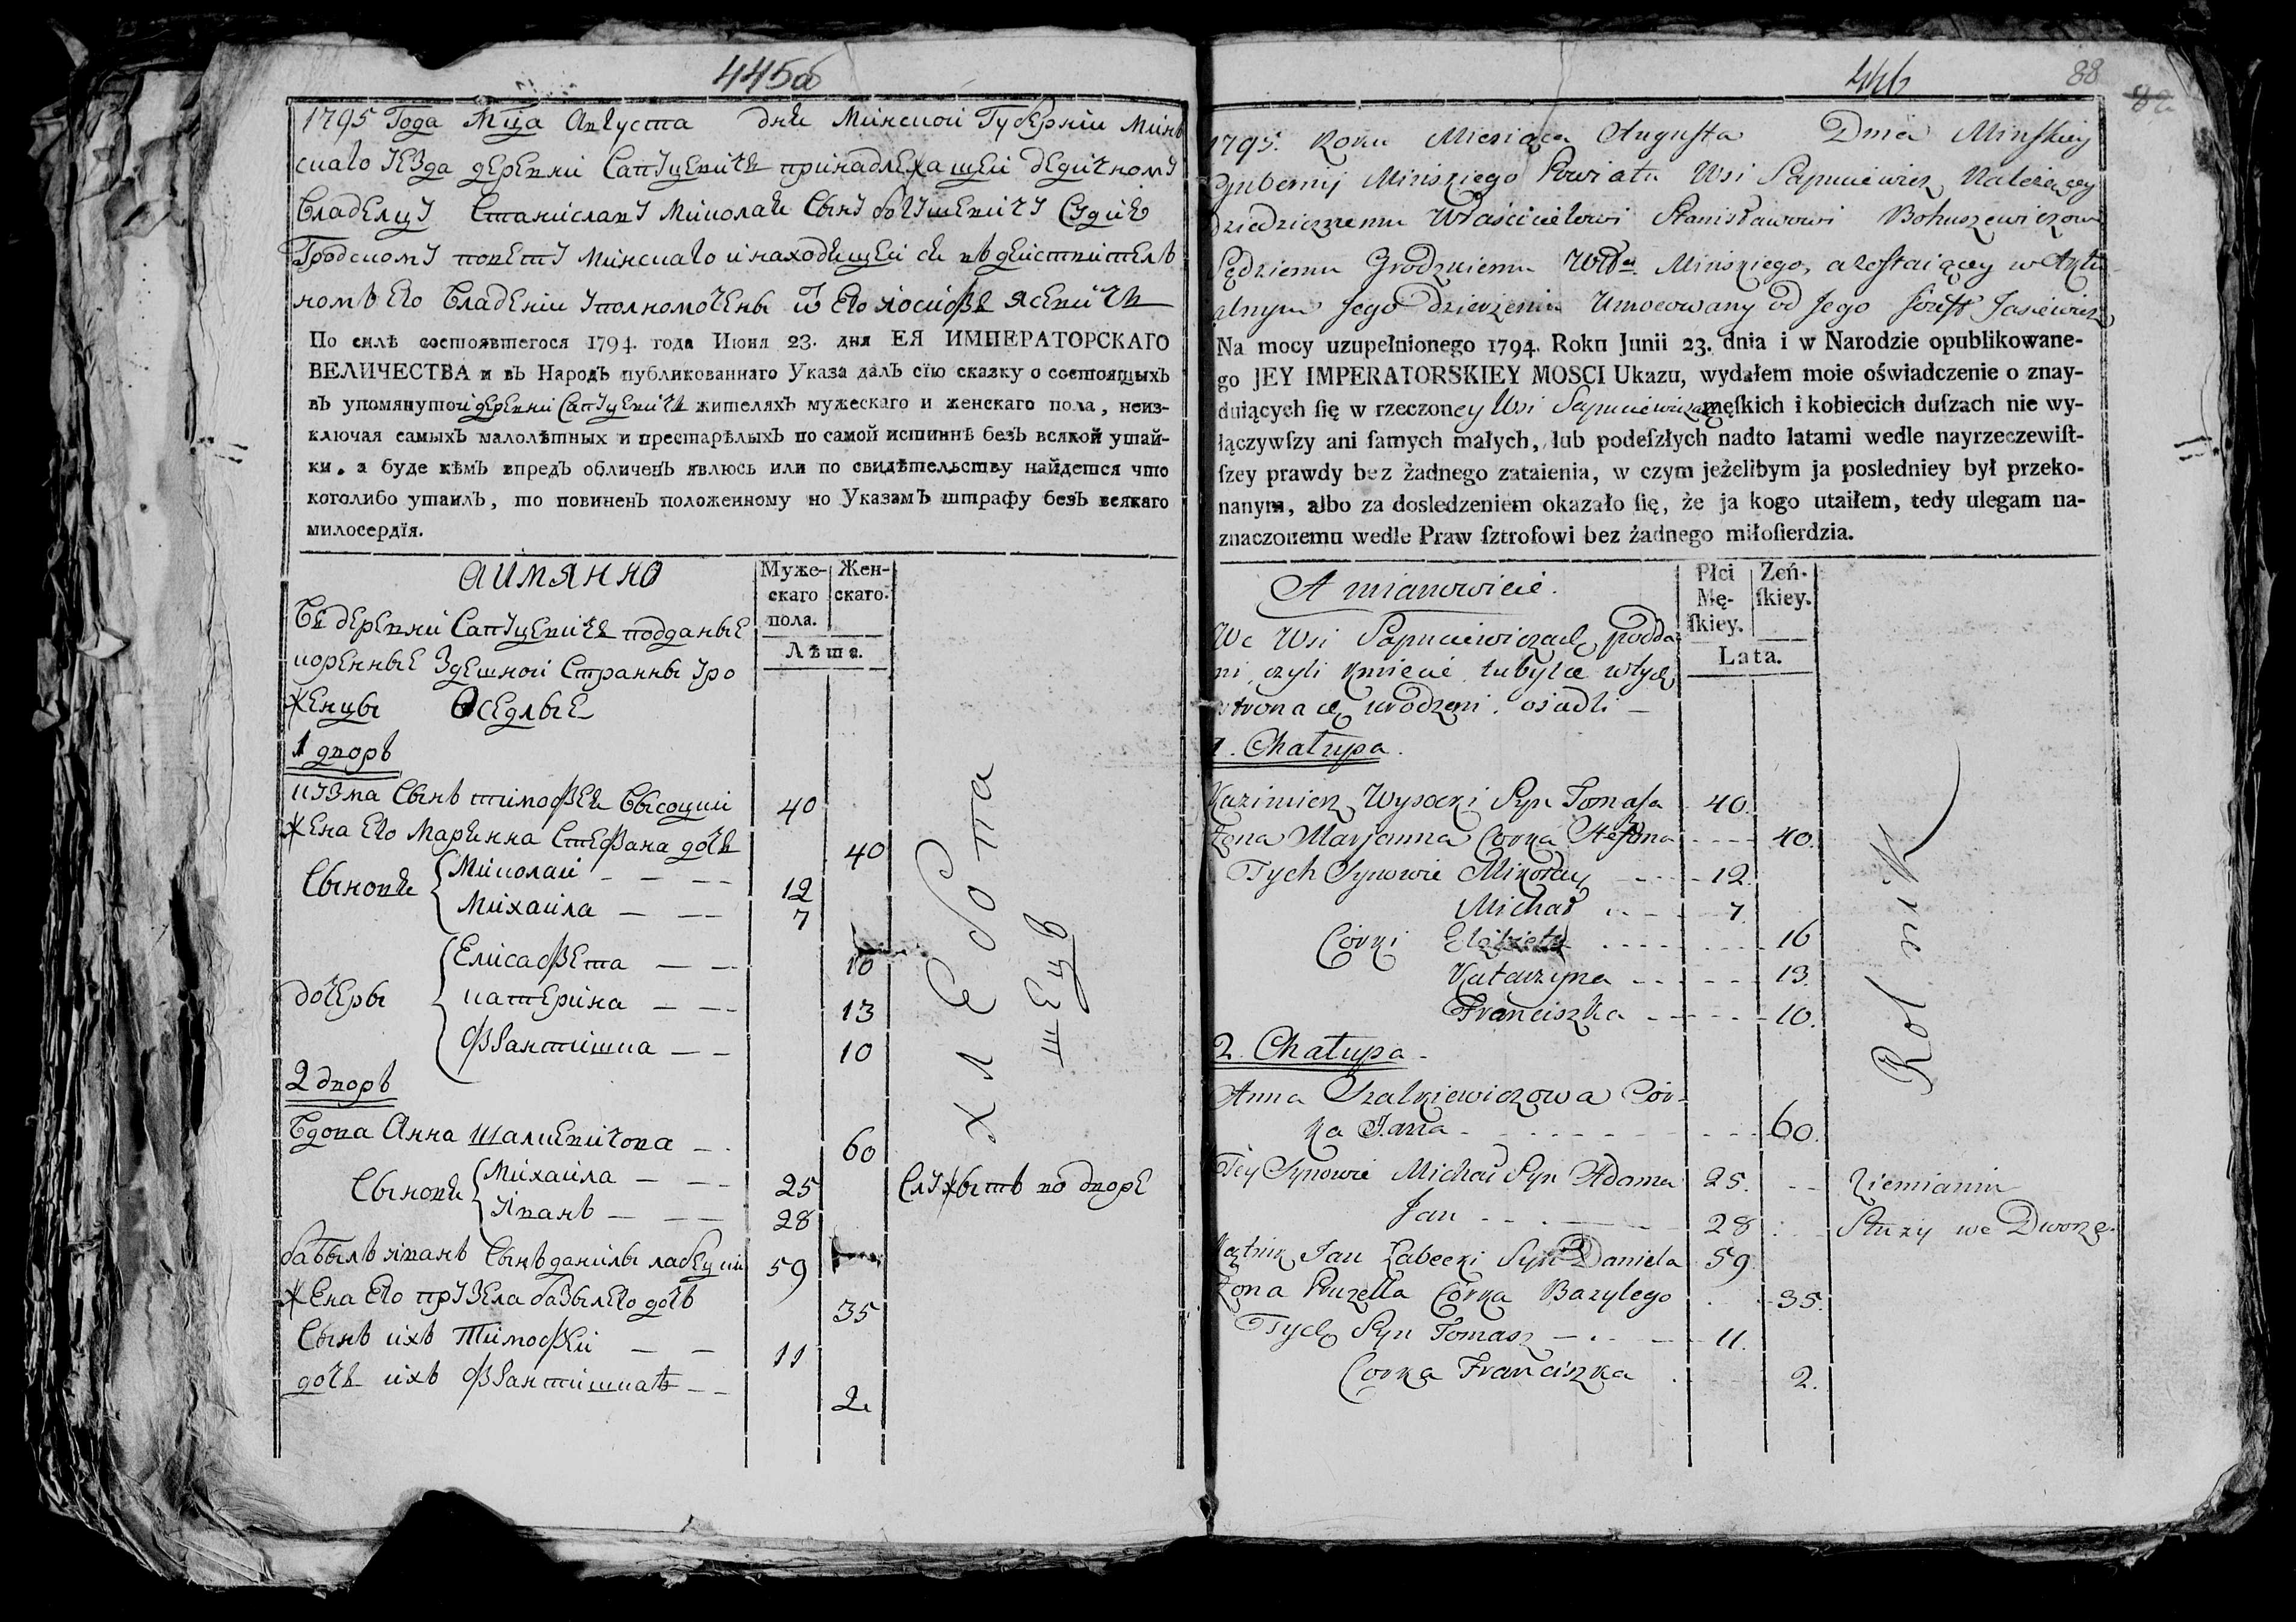 445об
1795 Года Мца Августа дня Минской Губернiи Минъ
скаго Уезда деревни Сапуцевичь принадлежащей дедичному
владелцу Станиславу Миколая сыну богушевичу Судiе
Гродскому повету минскаго и находящейся въ действителъ
номъ его владенiи уполномочены от его иосифъ Ясевичь
По силѣ состоявшегося 1794. года Июня 23. дня ЕЯ ИМПЕРАТОРСКАГО
ВЕЛИЧЕСТВА и въ Народъ публикованнаго Указа далъ сїю сказку о состоящыхъ
въ упомянутой деревни Сапуцевичь жителяхъ мужескаго и женскаго пола, неиз-
ключая самыхъ малолѣтных и престарѣлыхъ по самой истиннѣ безъ всякой утай-
ки. а буде кѣмъ впредъ обличенъ явлюсь или по свидѣтельству найдется что
коголибо утаилъ, то повиненъ положенному по Указамъ штрафу безъ всякаго
милосердїя.
аимянно
Муже-
скаго
пола.
Жен-
скаго.
Лѣта.
Въ деревни Сапуцевиче подданые
коренные здешной Странны уро
женцы Оседлые
1 дворъ
кузма сынъ тимофея высоцкий 40
жена его Марянна Стефана дочь 40
Сыновя Миколай 12
Михаила 7
дочеры Елисафета 10
катерина 13
Франтишка 10
2 дворъ
вдова Анна шалкевичова 60
Сыновя Михаила 25 служытъ во дворе
Иванъ 28
бабылъ иванъ Сынъ данилы лабецкий 59
жена его прузела базылего дочъ 35
Сынъ ихъ Тимофей 11
дочь ихъ Франтишкать 2
хлебопа
шецъ
446
88
1795. Roku Miesiąca Augusta Dnia Minſkiey
Gubernij Minskiego Powiatu Wsi Sapuciewicz Należącey
dziedzicznemu Właścicielowi Stanisławowi Bohuszewiczowi
Sędziemu Grodzkiemu Wdz. Minskiego, a zoſtaiącey w Aktu
alnym Jego Dzierżeniu Umocowany od Jego Jozeff Jasiewicz
Na mocy uzupełnionego 1794. Roku Junii 23. dnia i w Narodzie opublikowane-
go JEY IMPERATORSKIEY MOSCI Ukazu, wydałem moie oświadczenie o znay-
duiących ſię w rzeczoney Wsi Sapuciewiczach męſkich i kobiecich duſzach nie wy-
łączywſzy ani ſamych małych, lub podeſzłych nadto latami wedle nayrzeczewiſt-
ſzey prawdy bez żadnego zataienia, w czym jeżelibym ja posledniey był przeko-
nanym, albo za dosledzeniem okazało ſię, że ja kogo utaiłem, tedy ulegam na-
znaczonemu wedle Praw ſztrofowi bez żadnego miłoſierdzia.
A mianowicie.
Płci
Mę-
ſkiey.
Zeń-
ſkiey.
Lata.
We Wsi Sapuciewiczach podda
ni, czyli kmiecie tubylce w tych
stronach urodzeni, osiadli
1. Chałupa.
Kazimierz Wysocki Syn Tomaſa 40.
Zona Marjanna Corka Stefana 40.
Tych Synowie Mikołay 12.
Michał 7.
Córki Elżbieta 16
Katarzyna 13.
Franciszka 10.
2. Chałupa
Anna Szalkiewiczowa Cór-
ka Jana 60.
Tey Synowie Michał Syn Adama 25. Ziemianin
Jan 28 Służy we Dworze.
Kątnik Jan Łabecki Syn Daniela 59.
Zona Pruzella Corka Bazylego 35.
Tych Syn Tomasz 11.
Corka Franciszka 2.
Rolnik